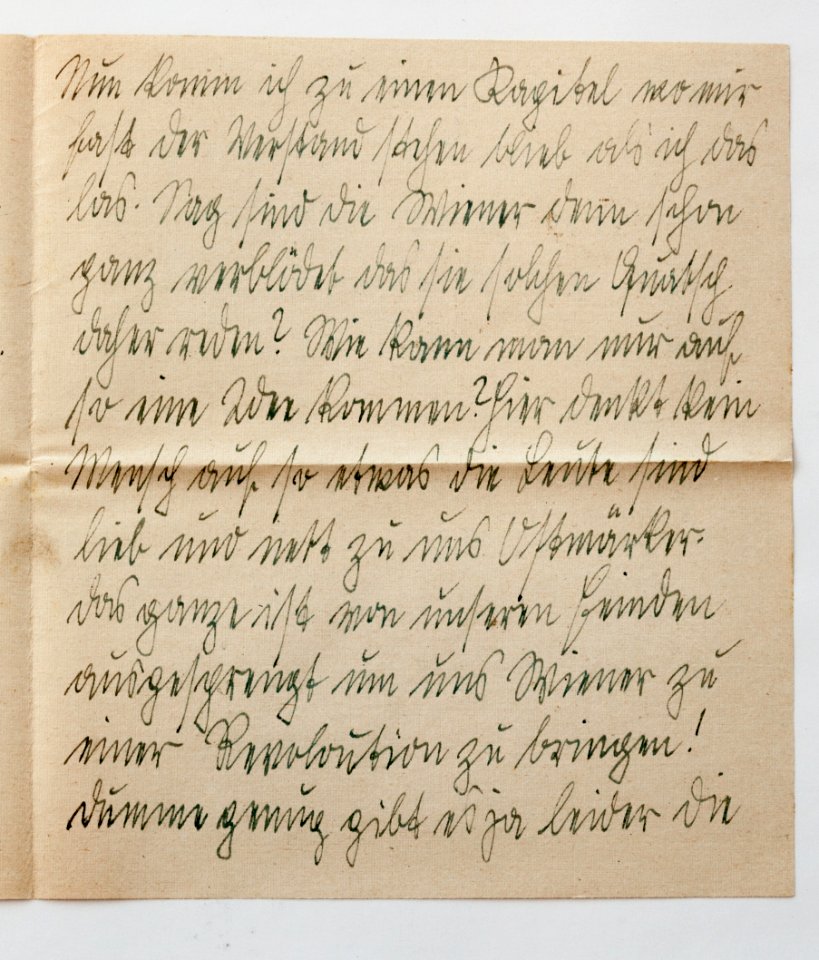 Nun komm ich zu einen Kapitel wo mir
fast der Verstand stehen blieb als ich das
las. Sag sind die Wiener denn schon
ganz verblödet das sie solchen Quatsch
daher reden? Wie kann man nur auf
so eine Idee kommen? Hier denkt kein
Mensch auf so etwas die Leute sind
lieb und nett zu uns Ostmärker.
das ganze ist von unseren Feinden
ausgesprengt um uns Wiener zu
einer Revoloution zu bringen!
dumme genug gibt es ja leider die